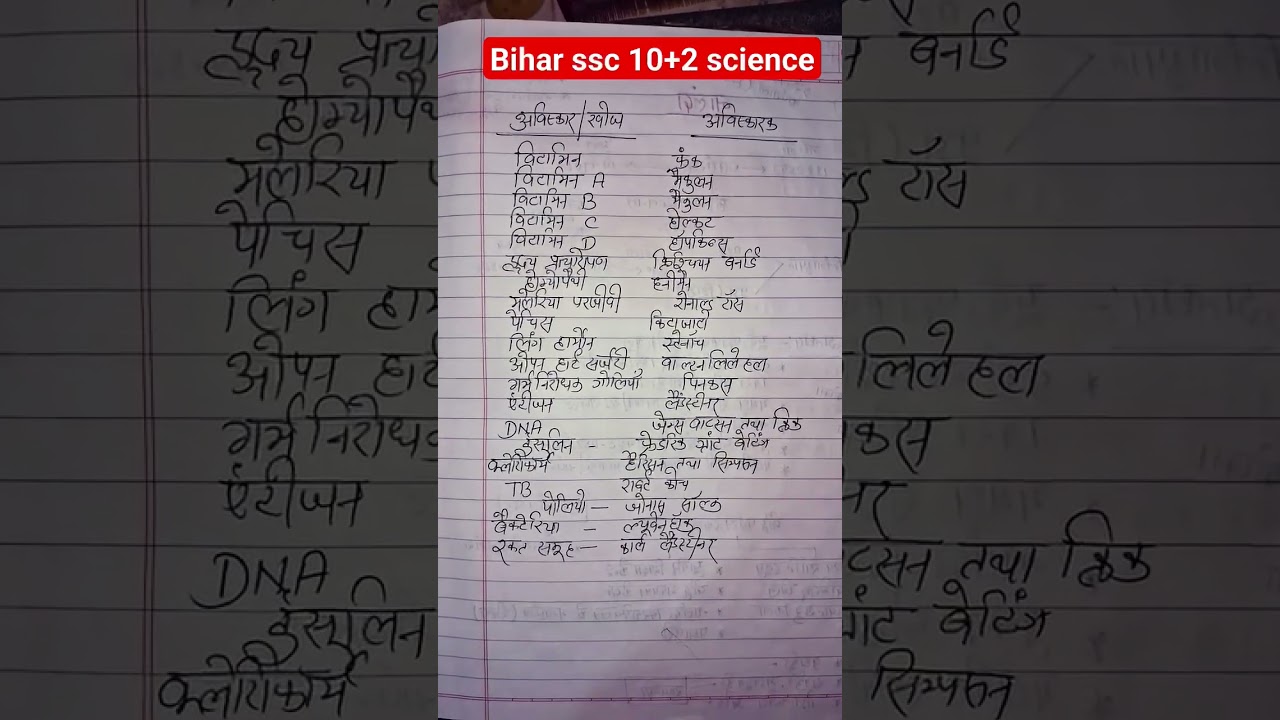 Bihar ssc 10+2 science
अविस्कार/खोज अविस्कारक
विटामिन फंक
विटामिन A मैकुलन
विटामिन B मैकुलन
विटामिन C होल्कट
विटामिन D हॉपकिन्स
हृदय प्रत्यारोपण क्रिश्चियन बर्नार्ड
होम्योपैथी हनीमैन
मलेरिया परजीवी रोनाल्ड रॉस
पेचिस किटाजाटो
लिंग हार्मोन स्टेनॉच
ओपन हार्ट सर्जरी वाल्टन लिलेहल
गर्भ निरोधक गोलियां पिनकस
एंटीजन लैंडस्टीनर
DNA जेम्स वाटसन तथा क्रिक
इंसुलिन - फ्रेडरिक ग्रांट बेटिंग
क्लोरोफार्म हैरिसन तथा सिम्पसन
TB राबर्ट कोच
पोलियो - जोनास सॉल्क
बैक्टेरिया - ल्यूवेनहॉक
रक्त समूह - कार्ल लैंडस्टीनर